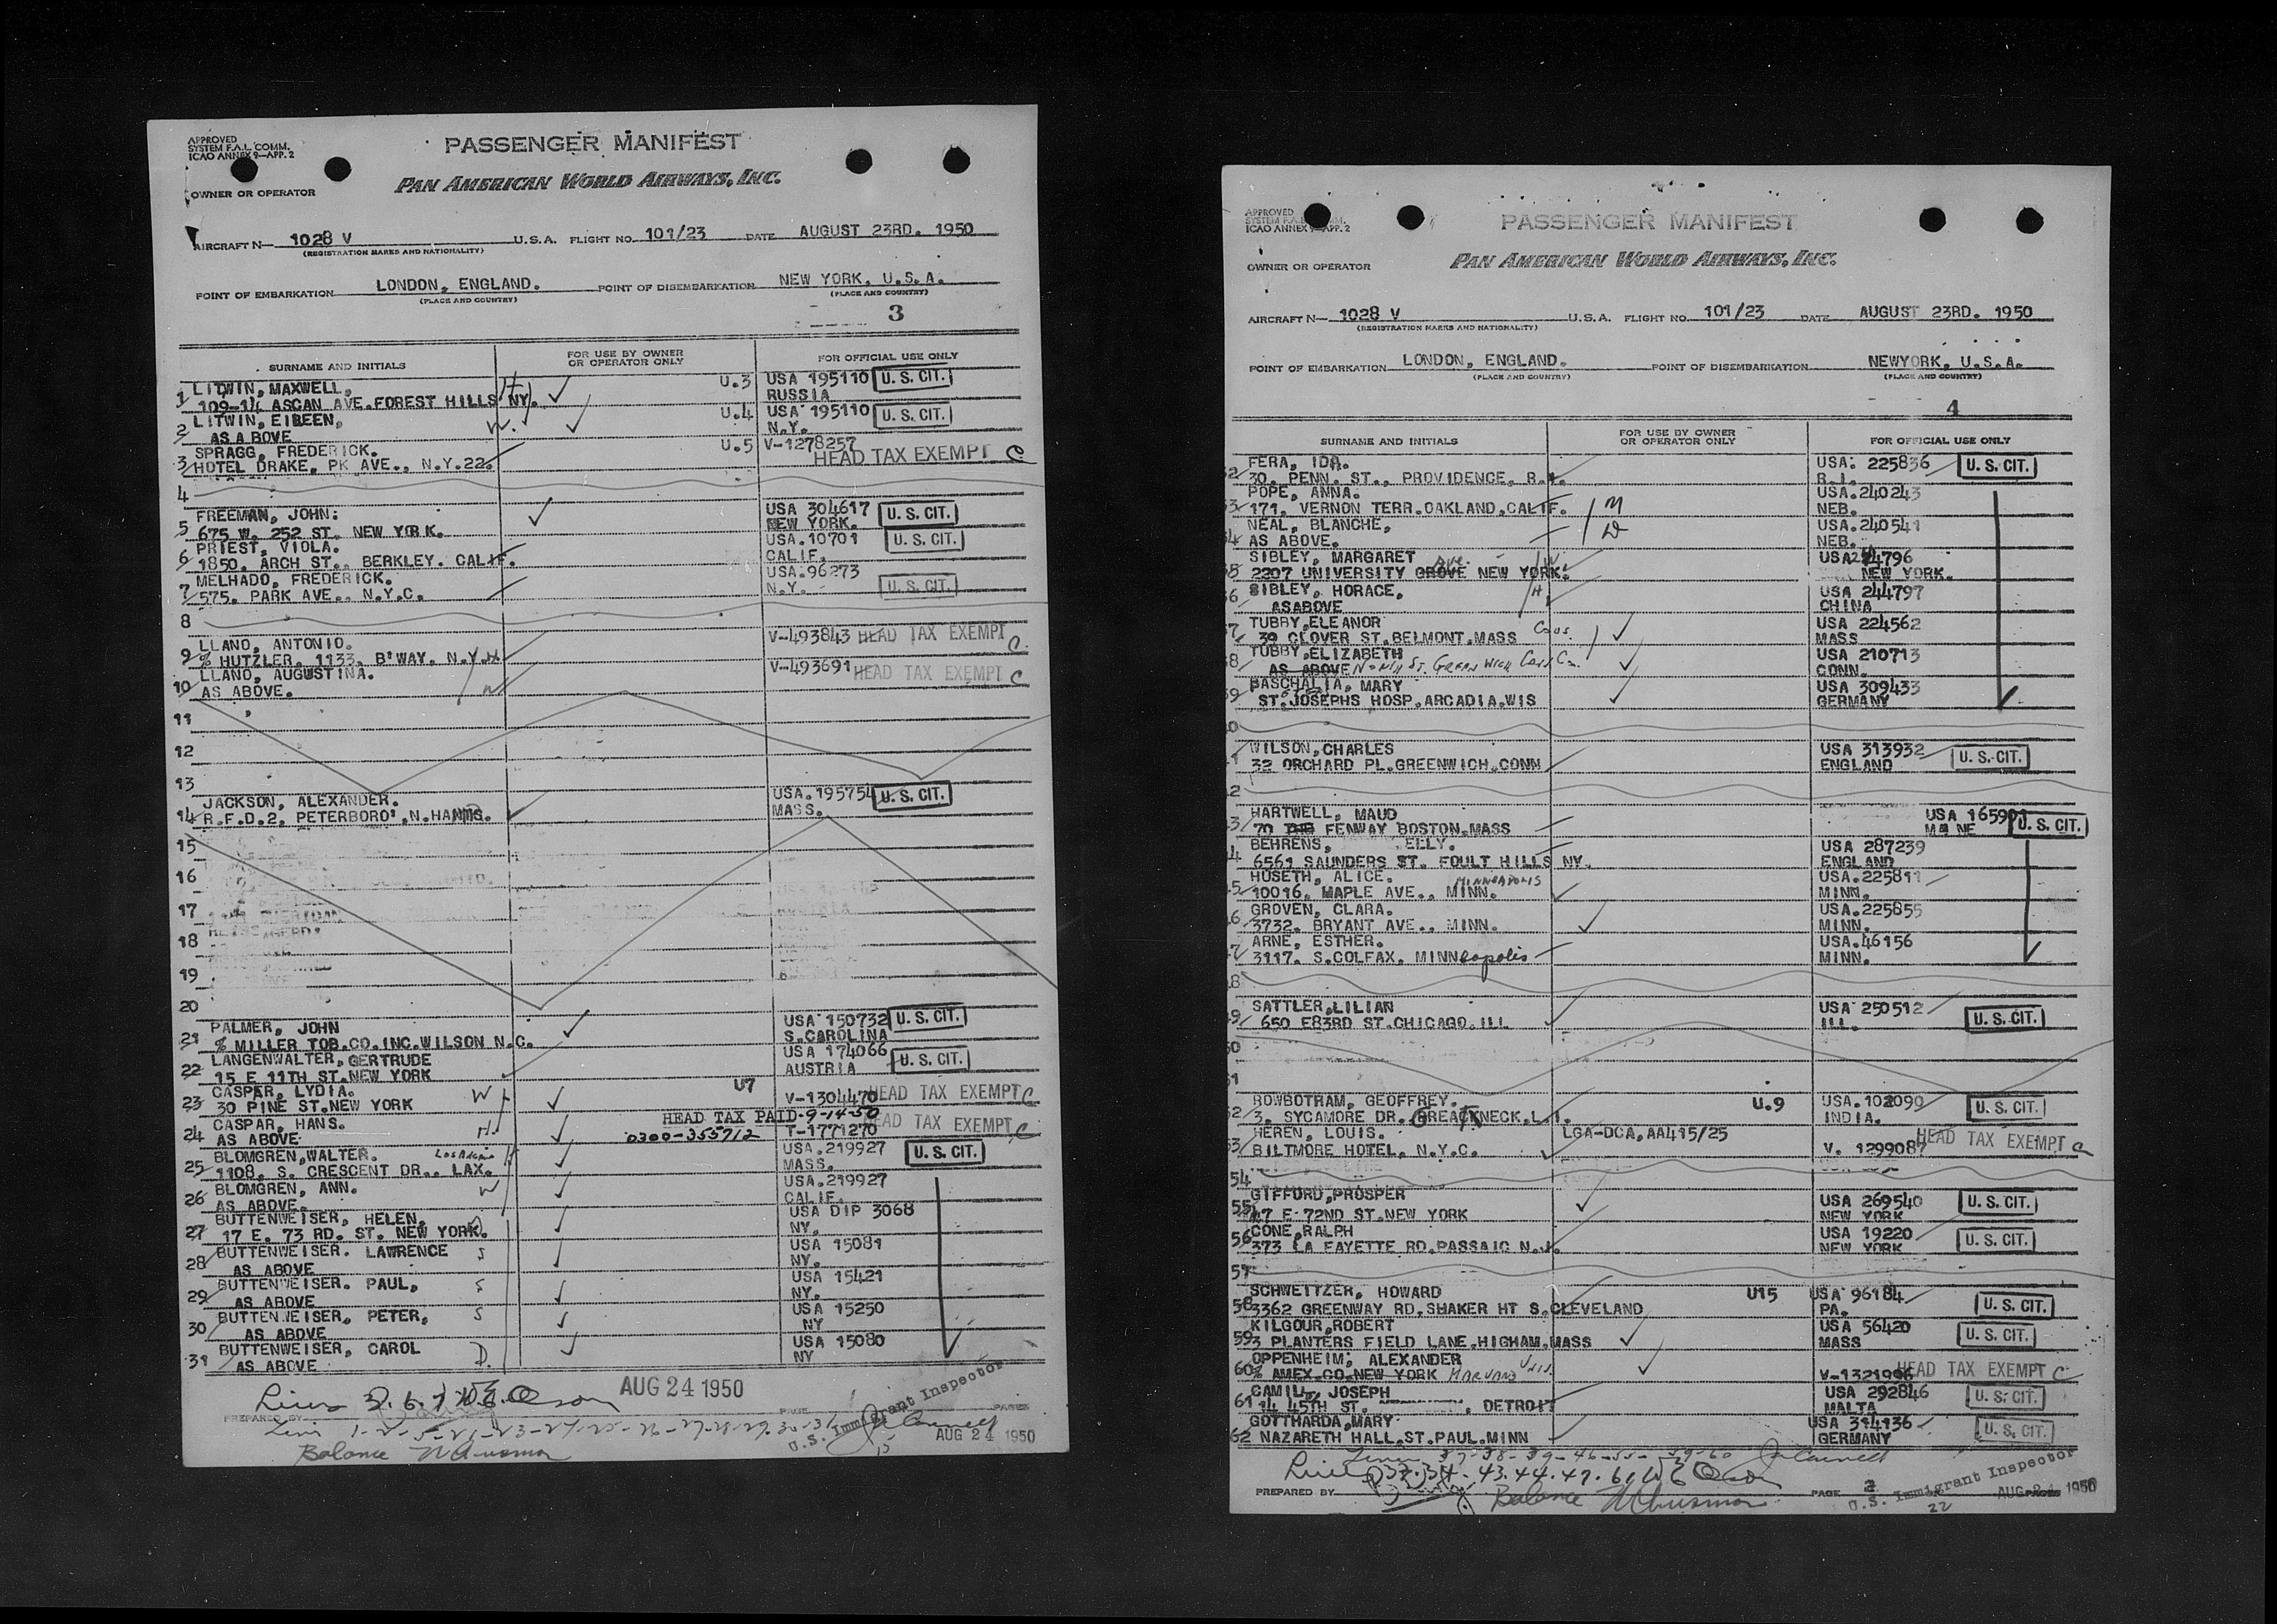 APPROVED
SYSTEM F.A.L. COMM.
ICAO ANNEX 9—APP. 2
PASSENGER MANIFEST
OWNER OR OPERATOR
PAN AMERICAN WORLD AIRWAYS, INC.
AIRCRAFT N— 1028 V U.S.A. FLIGHT NO. 101/23 DATE AUGUST 23RD. 1950
(REGISTRATION MARKS AND NATIONALITY)
POINT OF EMBARKATION LONDON, ENGLAND. POINT OF DISEMBARKATION NEW YORK, U.S.A.
(PLACE AND COUNTRY) (PLACE AND COUNTRY)
3
SURNAME AND INITIALS FOR USE BY OWNER OR OPERATOR ONLY FOR OFFICIAL USE ONLY
1 LITWIN, MAXWELL, H U.3 USA 195110 U. S. CIT.
109-14 ASCAN AVE.FOREST HILLS NY. RUSSIA
2 LITWIN, EILEEN, W. U.4 USA 195110 U. S. CIT.
AS ABOVE N.Y.
3 SPRAGG, FREDERICK. U.5 V-1278257
HOTEL DRAKE, PK AVE., N.Y.22. HEAD TAX EXEMPT C
4
5 FREEMAN, JOHN: USA 304617 U. S. CIT.
675 W. 252 ST. NEW YORK. NEW YORK.
6 PRIEST, VIOLA. USA.10701 U. S. CIT.
1850. ARCH ST., BERKLEY. CALIF. CALIF.
7 MELHADO, FREDERICK. USA.96273
575. PARK AVE., N.Y.C. N.Y. U. S. CIT.
8
9 LLANO, ANTONIO. V-493843 HEAD TAX EXEMPT
% HUTZLER. 1133. B'WAY. N.Y. H C
10 LLANO, AUGUSTINA. V-493691 HEAD TAX EXEMPT C
AS ABOVE. W
11
12
13
14 JACKSON, ALEXANDER. USA.195754 U. S. CIT.
R.F.D.2. PETERBORO',N.HAMS. MASS.
15
16
17
18
19
20
21 PALMER, JOHN USA 150732 U. S. CIT.
% MILLER TOB.CO.INC.WILSON N.C. S.CAROLINA
22 LANGENWALTER,GERTRUDE USA 174066 U. S. CIT.
15 E 11TH ST.NEW YORK AUSTRIA
23 CASPAR, LYDIA. W U7 V-1304470 HEAD TAX EXEMPT C
30 PINE ST.NEW YORK
24 CASPAR, HANS. H. HEAD TAX PAID 9-14-50 HEAD TAX EXEMPT C
AS ABOVE 0300-355712 T-1771270
25 BLOMGREN,WALTER. Los Angeles H USA.219927 U. S. CIT.
1108, S. CRESCENT DR., LAX. MASS.
26 BLOMGREN, ANN. W USA.219927
AS ABOVE. CALIF.
27 BUTTENWEISER, HELEN, USA DIP 3068
17 E. 73 RD. ST. NEW YORK. NY.
28 BUTTENWEISER. LAWRENCE S USA 15081
AS ABOVE NY.
29 BUTTENWEISER. PAUL, S USA 15421
AS ABOVE NY.
30 BUTTENWEISER, PETER, S USA 15250
AS ABOVE NY
31 BUTTENWEISER, CAROL D. USA 15080
AS ABOVE NY
AUG 24 1950
PREPARED BY PAGE PAGES
U.S. Immigrant Inspector
Balance
AUG 24 1950
APPROVED
SYSTEM F.A.L. COMM.
ICAO ANNEX 9—APP. 2
PASSENGER MANIFEST
OWNER OR OPERATOR
PAN AMERICAN WORLD AIRWAYS, INC.
AIRCRAFT N— 1028 V U.S.A. FLIGHT NO. 101/23 DATE AUGUST 23RD. 1950
(REGISTRATION MARKS AND NATIONALITY)
POINT OF EMBARKATION LONDON, ENGLAND. POINT OF DISEMBARKATION NEWYORK, U.S.A.
(PLACE AND COUNTRY) (PLACE AND COUNTRY)
4
SURNAME AND INITIALS FOR USE BY OWNER OR OPERATOR ONLY FOR OFFICIAL USE ONLY
2 FERA, IDA. USA: 225836 U. S. CIT.
30. PENN. ST., PROVIDENCE, R.I. R.I.
3 POPE, ANNA. M USA.240243
171, VERNON TERR.OAKLAND,CALIF. NEB.
4 NEAL, BLANCHE, D USA.240541
AS ABOVE. NEB.
5 SIBLEY, MARGARET Ave. W USA244796
2207 UNIVERSITY GROVE NEW YORK. NEW YORK.
6 SIBLEY, HORACE. H USA 244797
ASABOVE CHINA
7 TUBBY,ELEANOR Cous. USA 224562
39 CLOVER ST.BELMONT.MASS MASS
8 TUBBY,ELIZABETH USA 210713
AS ABOVE North St. Greenwich Conn CONN.
9 PASCHALIA, MARY USA 309433
ST.JOSEPHS HOSP.ARCADIA.WIS GERMANY
0
1 WILSON,CHARLES USA 313932 U. S. CIT.
32 ORCHARD PL.GREENWICH.CONN ENGLAND
2
3 HARTWELL, MAUD USA 165901 U. S. CIT.
70 THE FENWAY BOSTON.MASS MAINE
4 BEHRENS, EELY. USA 287239
6561 SAUNDERS ST. FOULT HILLS NY. ENGLAND
5 HUSETH, ALICE. MINNEAPOLIS USA.225811
10016. MAPLE AVE., MINN. MINN.
6 GROVEN, CLARA. USA.225855
3732. BRYANT AVE., MINN. MINN.
7 ARNE, ESTHER. USA.46156
3117. S.COLFAX. MINNeapolis MINN.
8
9 SATTLER,LILIAN USA 250512
650 E83RD ST.CHICAGO.ILL ILL. U. S. CIT.
50
51
52 ROWBOTRAM, GEOFFREY. U.9 USA.102090 U. S. CIT.
3, SYCAMORE DR. GREATNECK.L.I. INDIA.
53 HEREN, LOUIS. LGA-DCA,AA415/25 HEAD TAX EXEMPT C
BILTMORE HOTEL, N.Y.C. V. 1299087
54
55 GIFFORD,PROSPER USA 269540 U. S. CIT.
17 E 72ND ST.NEW YORK NEW YORK
56 CONE,RALPH USA 19220 U. S. CIT.
373 LA FAYETTE RD.PASSAIC N.J. NEW YORK
57
58 SCHWEITZER, HOWARD U15 USA 96184
3362 GREENWAY RD.SHAKER HT S.CLEVELAND PA. U. S. CIT.
59 KILGOUR,ROBERT USA 56420
3 PLANTERS FIELD LANE.HIGHAM.MASS MASS U. S. CIT.
60 OPPENHEIM, ALEXANDER HEAD TAX EXEMPT C
% AMEX.CO.NEW YORK Harvard Univ. V-1321996
61 CAMIL, JOSEPH USA 292846 U. S. CIT.
14 45TH ST. , DETROIT MALTA
62 GOTTHARDA,MARY USA 314136
NAZARETH HALL.ST.PAUL.MINN GERMANY U. S. CIT.
PREPARED BY Balance PAGE 2 PAGES
U.S. Immigrant Inspector
22